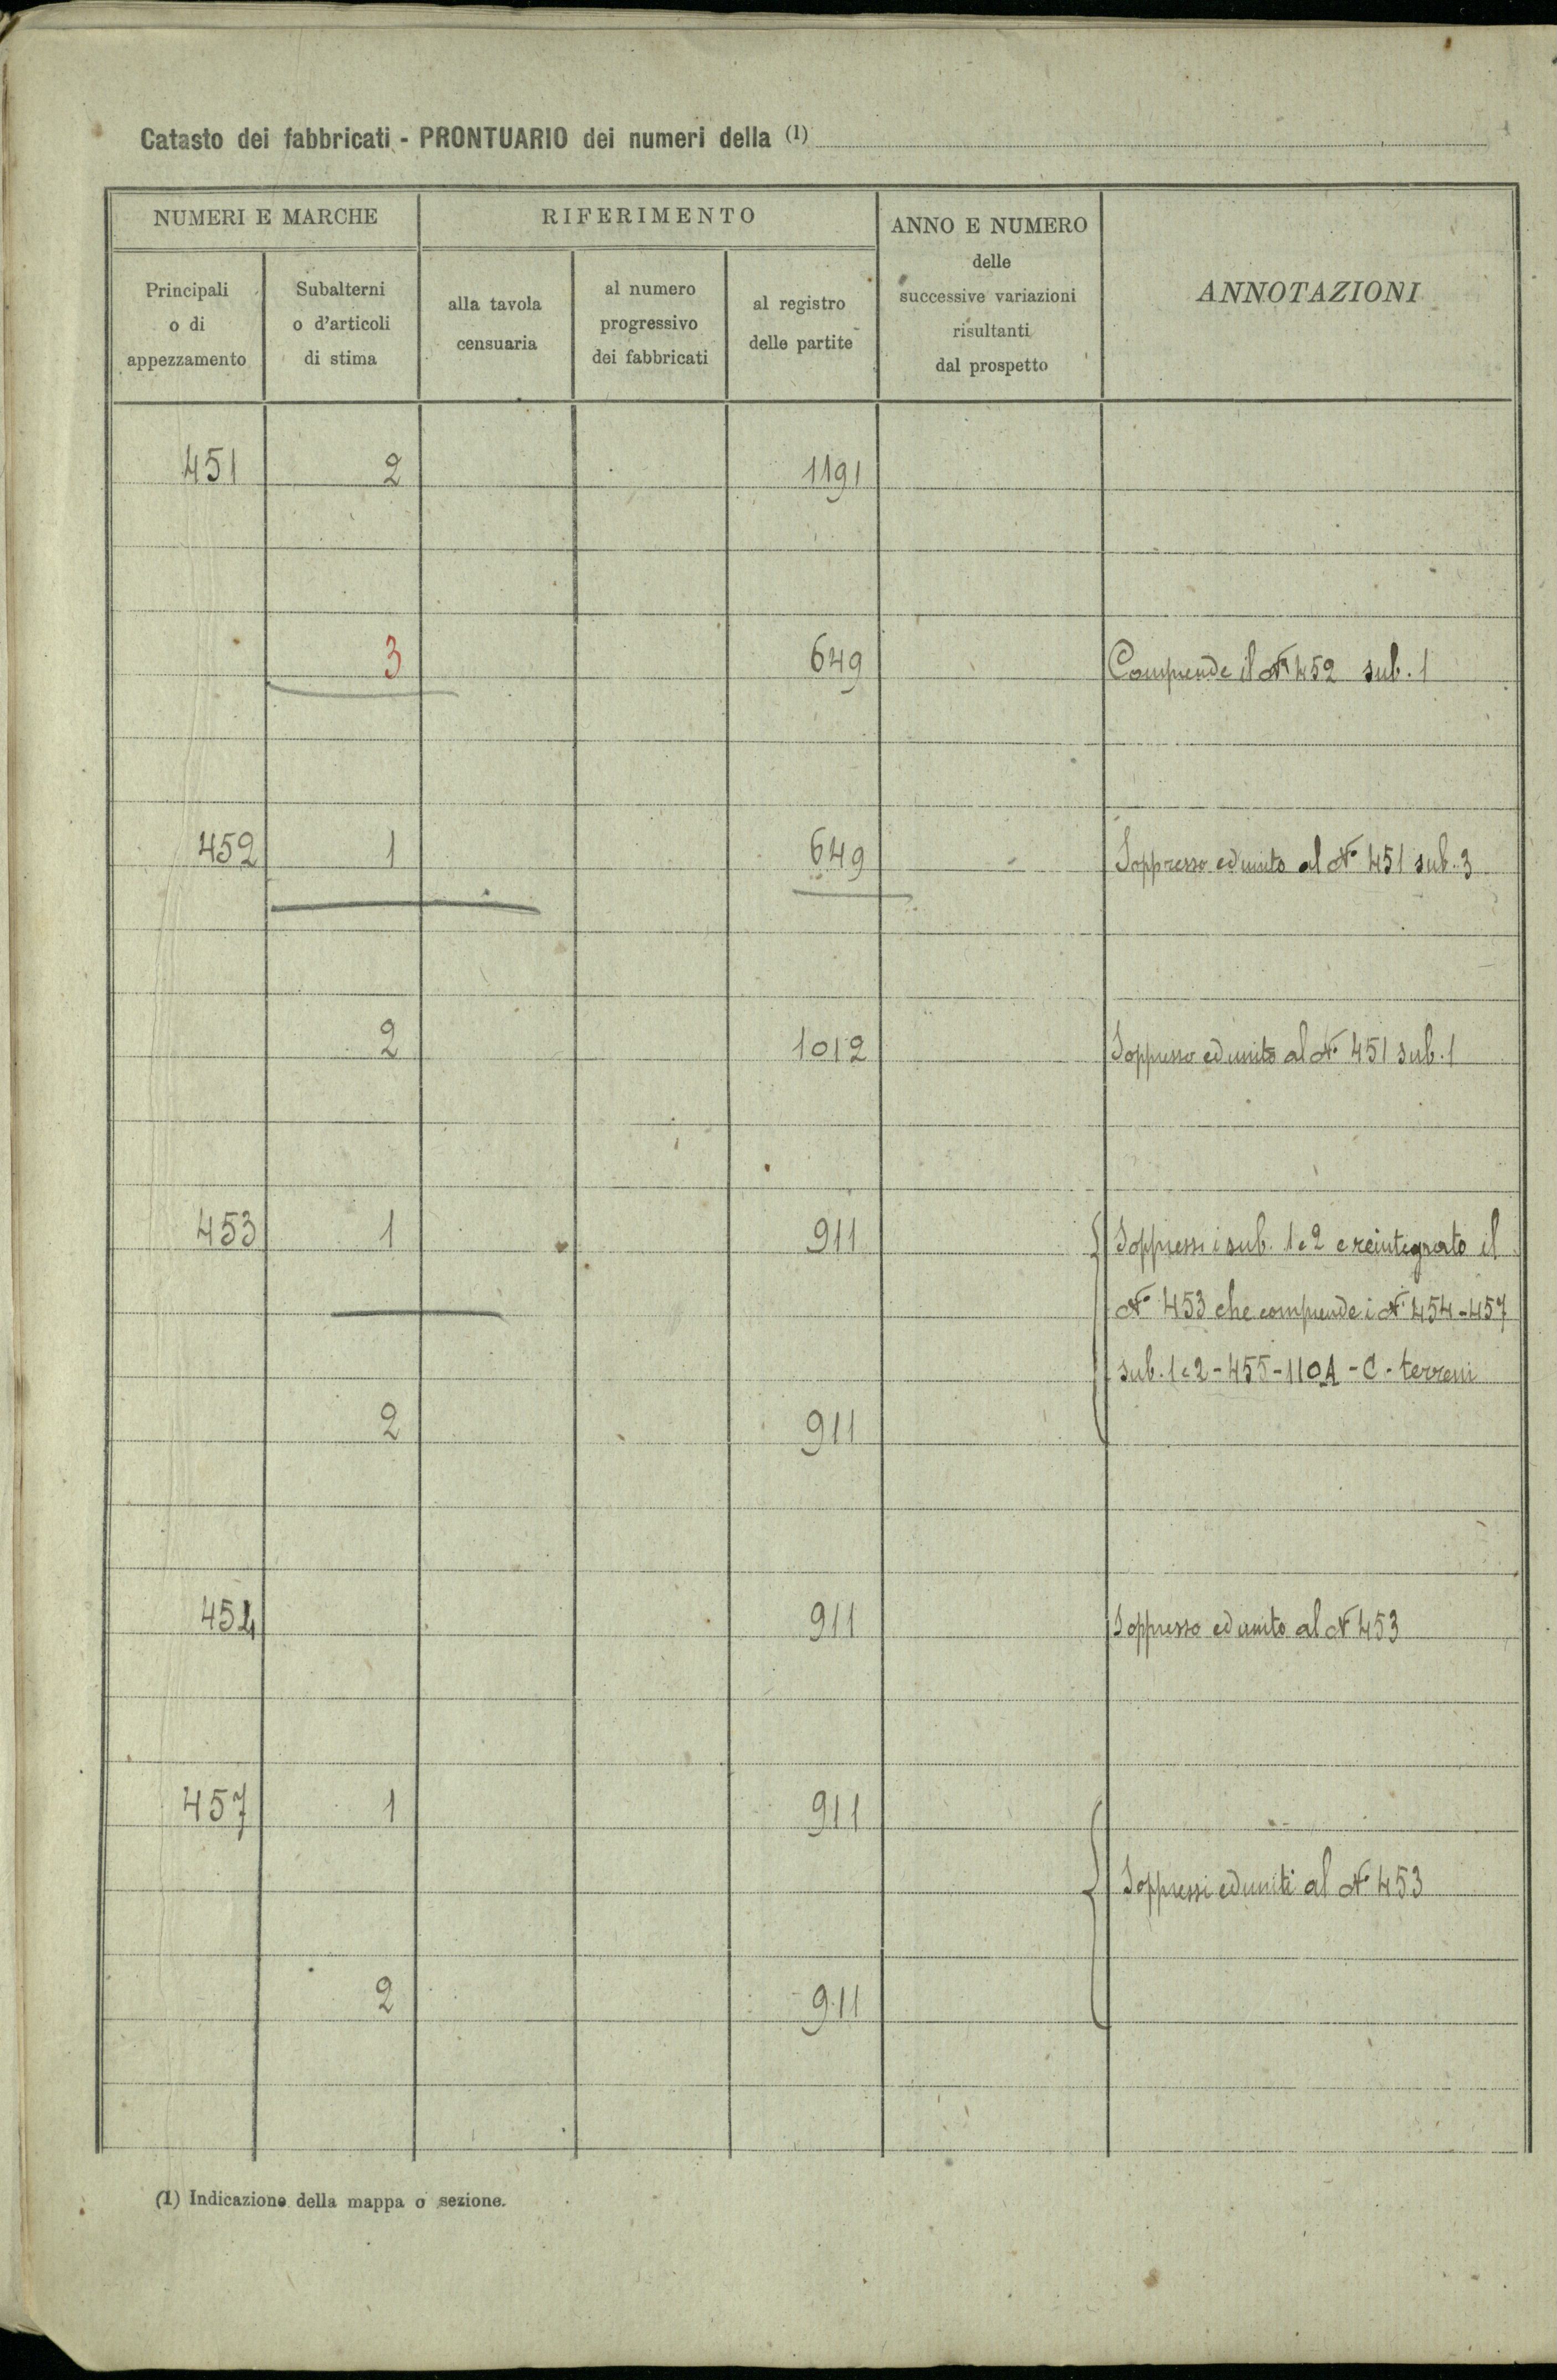 Catasto dei fabbricati - PRONTUARIO dei numeri della (1)
NUMERI E MARCHE
RIFERIMENTO
ANNO E NUMERO
delle
successive variazioni
risultanti
dal prospetto
ANNOTAZIONI
Principali
o di
appezzamento
Subalterni
o d'articoli
di stima
alla tavola
censuaria
al numero
progressivo
dei fabbricati
al registro
delle partite
451 2 1191
3 649 Comprende il N° 452 sub. 1
452 1 649 Soppresso ed unito al N° 451 sub. 3
2 1012 Soppresso ed unito al N° 451 sub. 1
453 1 911 Soppressi i sub. 1 e 2 e reintegrato il
N° 453 che comprende i N° 454-457
sub. 1 e 2 - 455 - 110A - C - terreni
2 911
454 911 Soppresso ed unito al N° 453
457 1 911
Soppressi ed uniti al N° 453
2 911
(1) Indicazione della mappa o sezione.